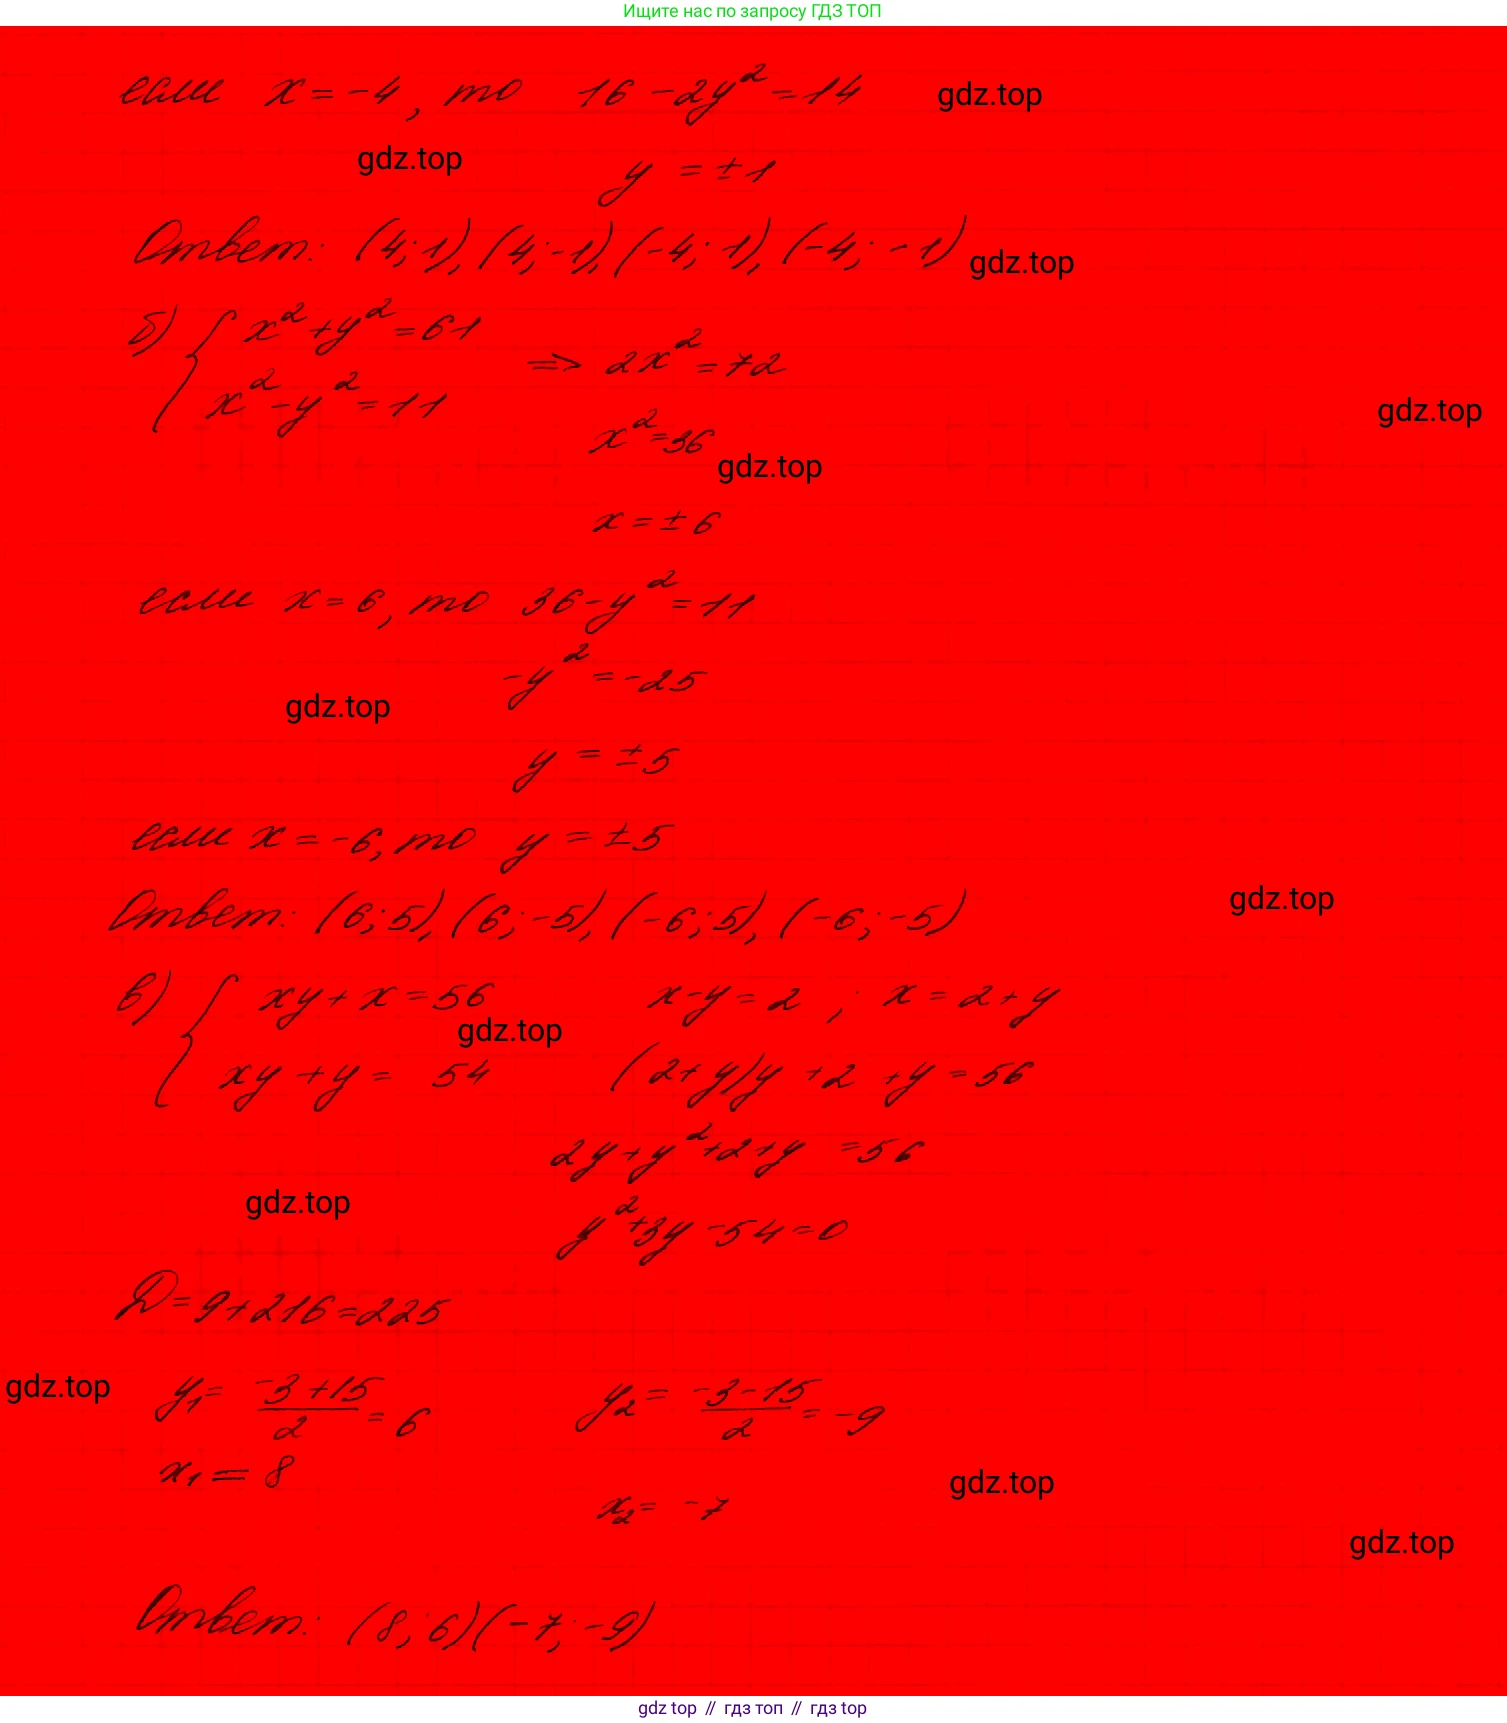 Ищите нас по запросу ГДЗ ТОП
если x = -4, то 16 - 2y² = 14
gdz.top
gdz.top
y = ±1
Ответ: (4; 1), (4; -1), (-4; 1), (-4; -1)
gdz.top
б) { x² + y² = 61
x² - y² = 11
=> 2x² = 72
gdz.top
x² = 36
gdz.top
x = ±6
если x = 6, то 36 - y² = 11
-y² = -25
gdz.top
y = ±5
если x = -6, то y = ±5
gdz.top
Ответ: (6; 5), (6; -5), (-6; 5), (-6; -5)
в) { xy + x = 56 x - y = 2 ; x = 2 + y
gdz.top
xy + y = 54 (2 + y)y + 2 + y = 56
2y + y² + 2 + y = 56
gdz.top
y² + 3y - 54 = 0
D = 9 + 216 = 225
gdz.top
y₁ = (-3 + 15)/2 = 6 y₂ = (-3 - 15)/2 = -9
x₁ = 8
gdz.top
x₂ = -7
gdz.top
Ответ: (8; 6) (-7; -9)
gdz top // гдз топ // гдз top